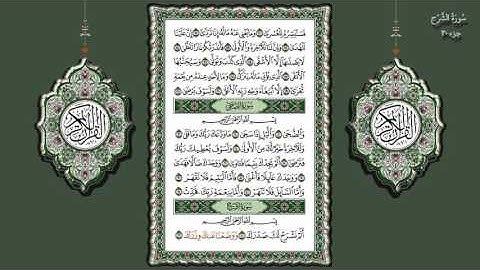 سُورَةُ الشَّرْحِ
جزء ٣٠
فَسَنُيَسِّرُهُۥ لِلْعُسْرَىٰ ۝١٠ وَمَا يُغْنِي عَنْهُ مَالُهُۥٓ إِذَا تَرَدَّىٰٓ ۝١١ إِنَّ عَلَيْنَا
لَلْهُدَىٰ ۝١٢ وَإِنَّ لَنَا لَلْءَاخِرَةَ وَٱلْأُولَىٰ ۝١٣ فَأَنذَرْتُكُمْ نَارًا تَلَظَّىٰ ۝١٤
لَا يَصْلَىٰهَآ إِلَّا ٱلْأَشْقَى ۝١٥ ٱلَّذِي كَذَّبَ وَتَوَلَّىٰ ۝١٦ وَسَيُجَنَّبُهَا
ٱلْأَتْقَى ۝١٧ ٱلَّذِي يُؤْتِي مَالَهُۥ يَتَزَكَّىٰ ۝١٨ وَمَا لِأَحَدٍ عِندَهُۥ مِن نِّعْمَةٍ
تُجْزَىٰٓ ۝١٩ إِلَّا ٱبْتِغَآءَ وَجْهِ رَبِّهِ ٱلْأَعْلَىٰ ۝٢٠ وَلَسَوْفَ يَرْضَىٰ ۝٢١
سُورَةُ الضُّحَىٰ
بِسْمِ ٱللَّهِ ٱلرَّحْمَٰنِ ٱلرَّحِيمِ
وَٱلضُّحَىٰ ۝١ وَٱلَّيْلِ إِذَا سَجَىٰ ۝٢ مَا وَدَّعَكَ رَبُّكَ وَمَا قَلَىٰ ۝٣
وَلَلْءَاخِرَةُ خَيْرٌ لَّكَ مِنَ ٱلْأُولَىٰ ۝٤ وَلَسَوْفَ يُعْطِيكَ رَبُّكَ
فَتَرْضَىٰٓ ۝٥ أَلَمْ يَجِدْكَ يَتِيمًا فَـَٔاوَىٰ ۝٦ وَوَجَدَكَ ضَآلًّا فَهَدَىٰ
۝٧ وَوَجَدَكَ عَآئِلًا فَأَغْنَىٰ ۝٨ فَأَمَّا ٱلْيَتِيمَ فَلَا تَقْهَرْ ۝٩
وَأَمَّا ٱلسَّآئِلَ فَلَا تَنْهَرْ ۝١٠ وَأَمَّا بِنِعْمَةِ رَبِّكَ فَحَدِّثْ ۝١١
سُورَةُ الشَّرْحِ
بِسْمِ ٱللَّهِ ٱلرَّحْمَٰنِ ٱلرَّحِيمِ
أَلَمْ نَشْرَحْ لَكَ صَدْرَكَ ۝١ وَوَضَعْنَا عَنكَ وِزْرَكَ ۝٢
القرآن الكريم
القرآن الكريم